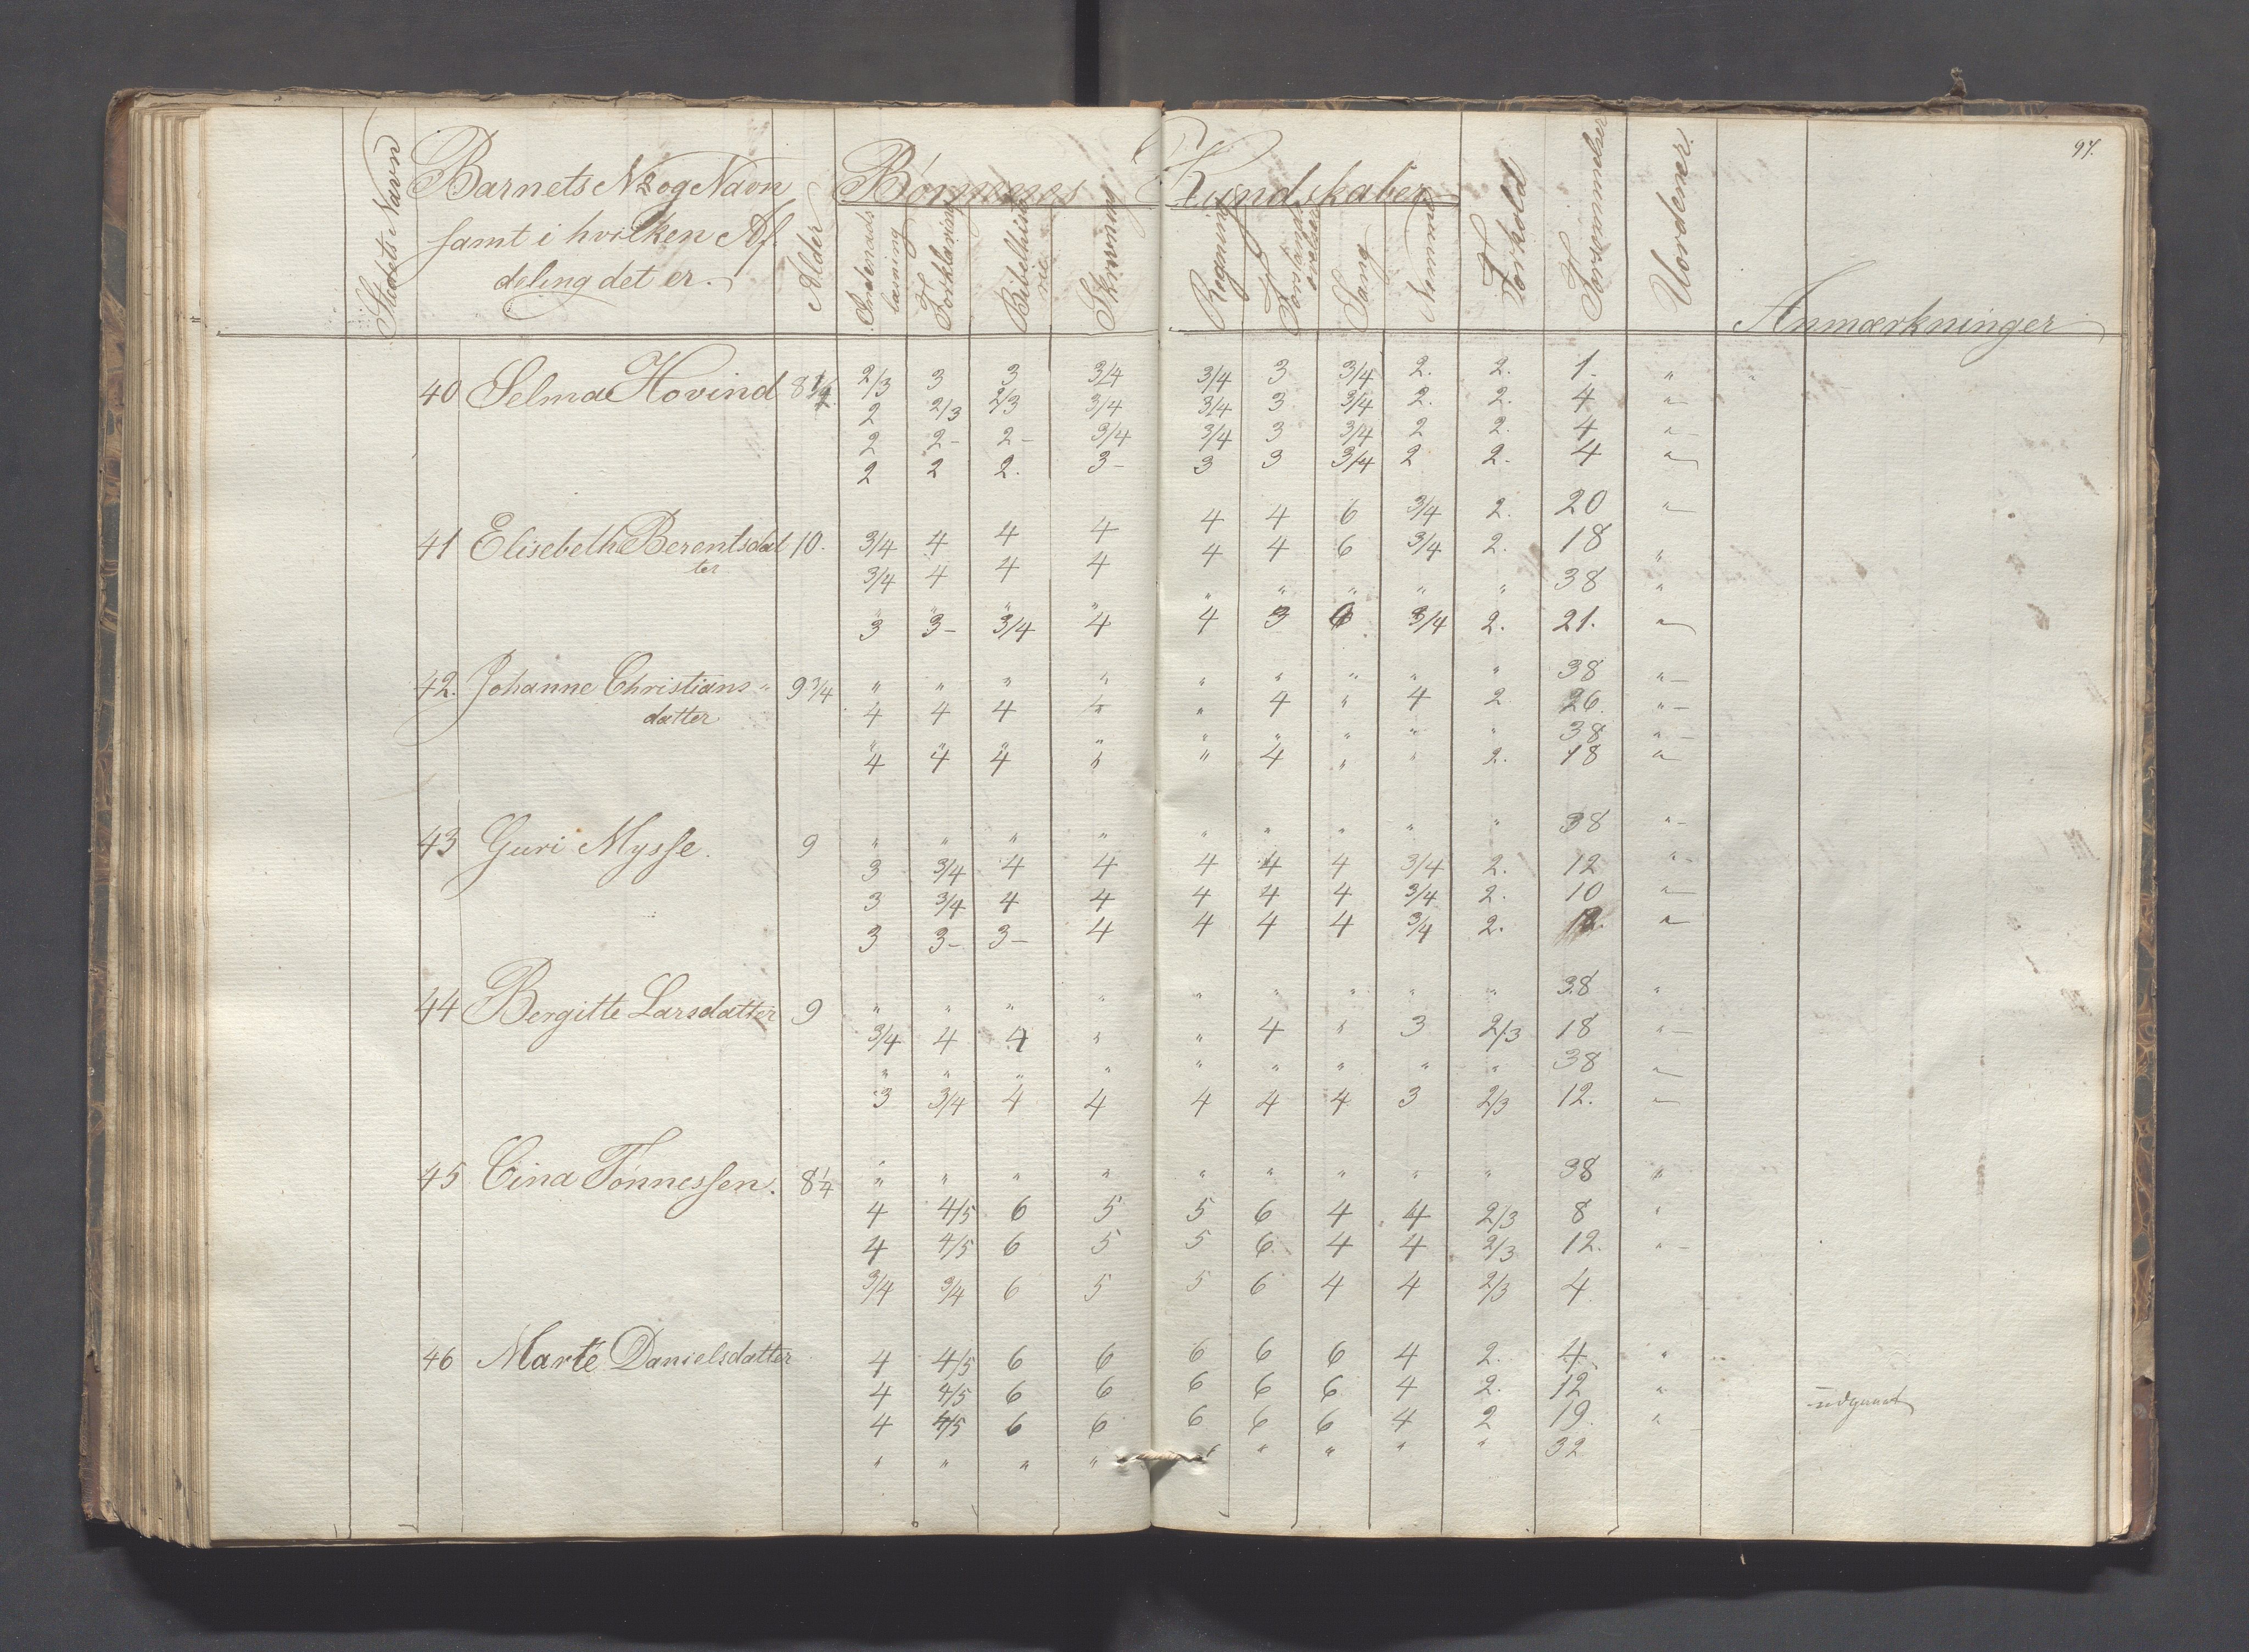 97.
Stedets Navn
Barnets No og Navn
samt i hvilken Af-
deling det er.
Alder
Børnenes Kundskaber
Indenads
læsning
Forklaring
Bibelhisto
rie
Skrivning
Regning
Forstands
øvelser
Sang
Nemme
Forhold
Forsømmelser
Uordener
Anmærkninger
40 Selma Hovind 8 1/2 2/3 3 3 3/4 3/4 3 3/4 2. 2. 1. "
2 2/3 2/3 3/4 3/4 3 3/4 2. 2. 4 "
2 2- 2- 3/4 3/4 3 3/4 2 2. 4 "
2 2 2. 3- 3 3 3/4 2 2. 4 "
41 Elisebeth Berentsdat 10. 3/4 4 4 4 4 4 6 3/4 2. 20 "
ter 3/4 4 4 4 4 4 6 3/4 2. 18 "
" " " " " " " " " 38 "
3 3- 3/4 4 4 3 6 3/4 2. 21. "
42. Johanne Christians- 9 3/4 " " " " " " " " " 38 "
datter 4 4 4 4 " 4 " 4 2 26. "
" " " " " " " " " 38 "
4 4 4 " " 4 " " 2. 18 "
43 Guri Mysse. 9 " " " " " " " " " 38 "
3 3/4 4 4 4 4 4 3/4 2. 12 "
3 3/4 4 4 4 4 4 3/4 2. 10 "
3 3- 3- 4 4 4 4 3/4 2. 12. "
44 Bergitte Larsdatter 9 " " " " " " " " " 38 "
3/4 4 4 " " 4 " 3 2/3 18 "
" " " " " " " " " 38 "
3 3/4 4 4 4 4 4 3 2/3 12. "
45 Cina Tønnessen. 8 1/4 " " " " " " " " " 38 "
4 4/5 6 5 5 6 4 4 2/3 8 "
4 4/5 6 5 5 6 4 4 2/3 12. "
3/4 3/4 6 5 5 6 4 4 2/3 4
46 Marte Danielsdatter 4 4/5 6 6 6 6 6 4 2. 4. "
4 4/5 6 6 6 6 6 4 2. 12 " udgaaet
4 4/5 6 6 6 6 6 4 2 19. "
" " " " " " " " " 32